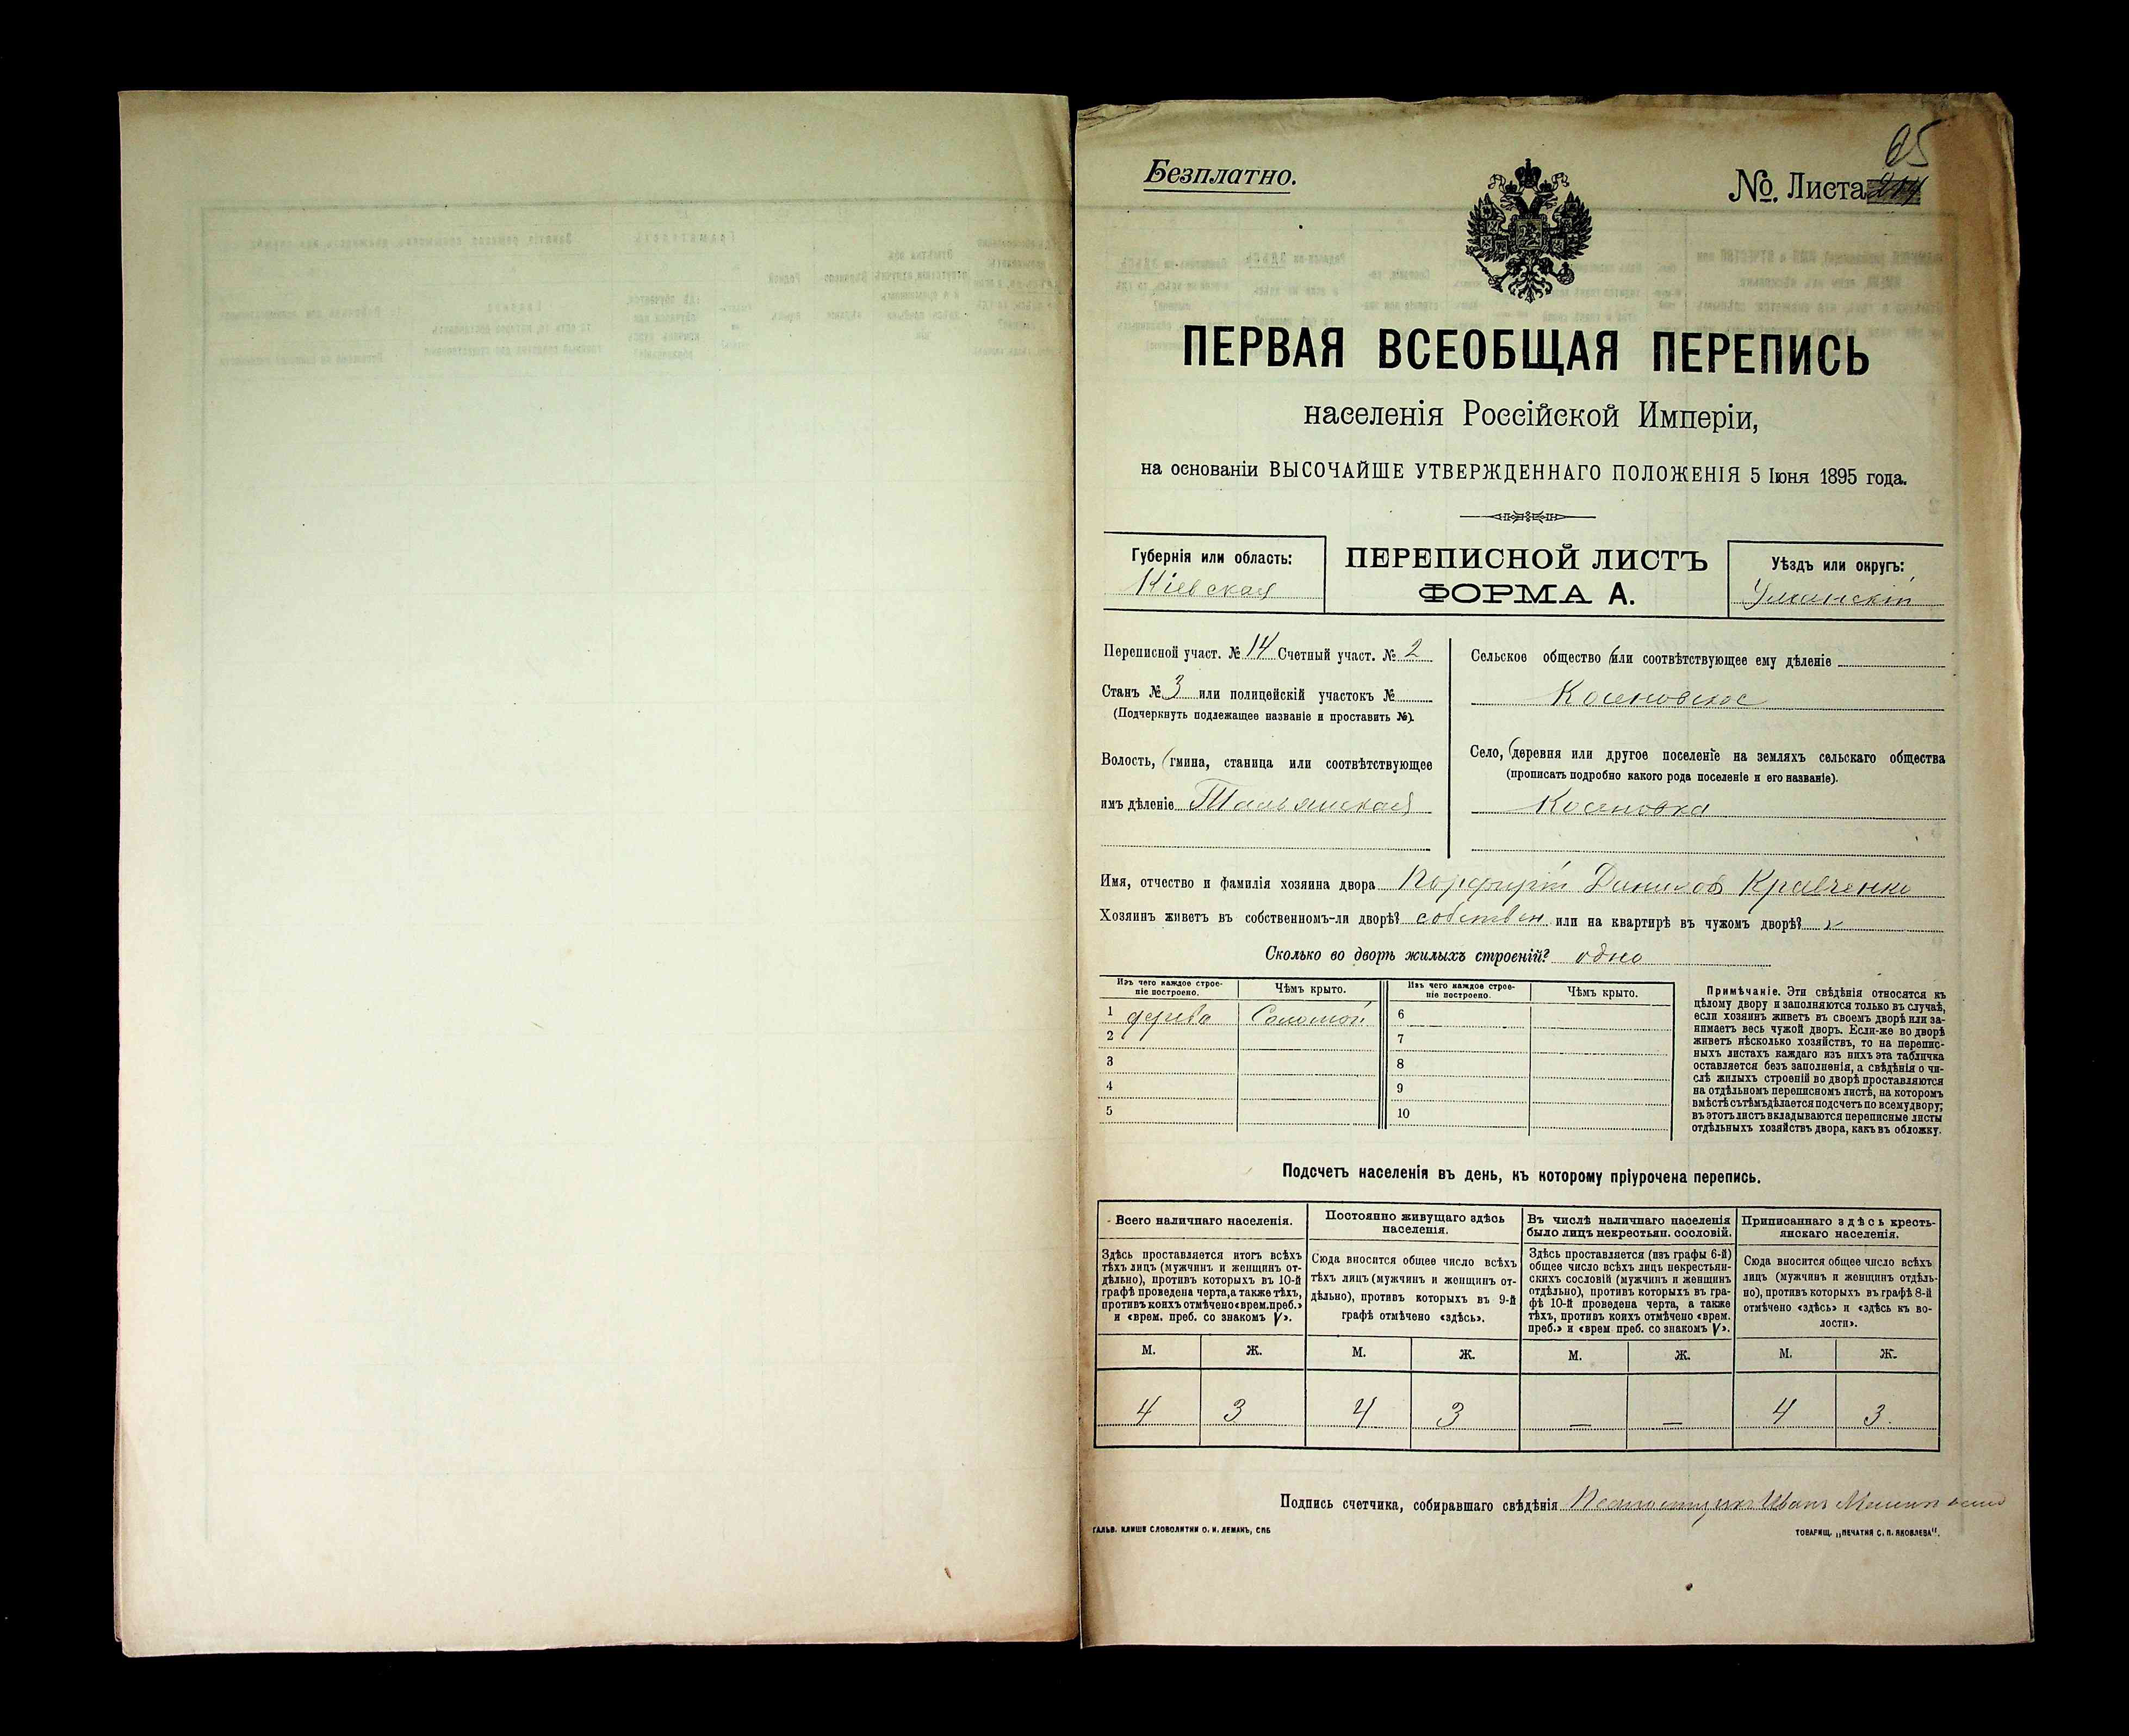 65
Безплатно.
№. Листа 214
ПЕРВАЯ ВСЕОБЩАЯ ПЕРЕПИСЬ
населенія Россійской Имперіи,
на основаніи ВЫСОЧАЙШЕ УТВЕРЖДЕННАГО ПОЛОЖЕНІЯ 5 Іюня 1895 года.
Губернія или область:
Кіевская
ПЕРЕПИСНОЙ ЛИСТЪ
ФОРМА А.
Уѣздъ или округъ:
Уманскій
Переписной участ. № 14 Счетный участ. № 2
Станъ № 3 или полицейскій участокъ №
(Подчеркнуть подлежащее названіе и проставить №).
Волость, (гмина, станица или соотвѣтствующее
имъ дѣленіе Тальянская
Сельское общество (или соотвѣтствующее ему дѣленіе
Косеновское
Село, (деревня или другое поселеніе на земляхъ сельскаго общества
(прописать подробно какого рода поселеніе и его названіе).
Косеновка
Имя, отчество и фамилія хозяина двора Порфирій Данилов Кравченко
Хозяинъ живетъ въ собственномъ-ли дворѣ? собствен или на квартирѣ въ чужомъ дворѣ?
Сколько во дворѣ жилыхъ строеній? одно
Изъ чего каждое строе-
ніе построено.
Чѣмъ крыто.
Изъ чего каждое строе-
ніе построено.
Чѣмъ крыто.
1 дерева Соломой
2
3
4
5
6
7
8
9
10
Примѣчаніе. Эти свѣдѣнія относятся къ
цѣлому двору и заполняются только въ случаѣ,
если хозяинъ живетъ въ своемъ дворѣ или за-
нимаетъ весь чужой дворъ. Если-же во дворѣ
живетъ нѣсколько хозяйствъ, то на перепис-
ныхъ листахъ каждаго изъ нихъ эта табличка
оставляется безъ заполненія, а свѣдѣнія о чи-
слѣ жилыхъ строеній во дворѣ проставляются
на отдѣльномъ переписномъ листѣ, на которомъ
вмѣстѣ съ тѣмъ дѣлается подсчетъ по всему двору;
въ этотъ листъ вкладываются переписные листы
отдѣльныхъ хозяйствъ двора, какъ въ обложку.
Подсчетъ населенія въ день, къ которому пріурочена перепись.
Всего наличнаго населенія.
Здѣсь проставляется итогъ всѣхъ
тѣхъ лицъ (мужчинъ и женщинъ от-
дѣльно), противъ которыхъ въ 10-й
графѣ проведена черта, а также тѣхъ,
противъ коихъ отмѣчено «врем. преб.»
и «врем. преб. со знакомъ V».
Постоянно живущаго здѣсь
населенія.
Сюда вносится общее число всѣхъ
тѣхъ лицъ (мужчинъ и женщинъ от-
дѣльно), противъ которыхъ въ 9-й
графѣ отмѣчено «здѣсь».
Въ числѣ наличнаго населенія
было лицъ некрестьян. сословій.
Здѣсь проставляется (изъ графы 6-й)
общее число всѣхъ лицъ некрестьян-
скихъ сословій (мужчинъ и женщинъ
отдѣльно), противъ которыхъ въ гра-
фѣ 10-й проведена черта, а также
тѣхъ, противъ коихъ отмѣчено «врем.
преб.» и «врем преб. со знакомъ V».
Приписаннаго здѣсь кресть-
янскаго населенія.
Сюда вносится общее число всѣхъ
лицъ (мужчинъ и женщинъ отдѣль-
но), противъ которыхъ въ графѣ 8-й
отмѣчено «здѣсь» и «здѣсь къ во-
лости».
М. Ж. М. Ж. М. Ж. М. Ж.
4 3 4 3 — — 4 3.
Подпись счетчика, собиравшаго свѣдѣнія Псаломщикъ Иванъ
ГАЛЬВ. КЛИШЕ СЛОВОЛИТНИ О. И. ЛЕМАНЪ, СПБ
ТОВАРИЩ. „ПЕЧАТНЯ С. П. ЯКОВЛЕВА".